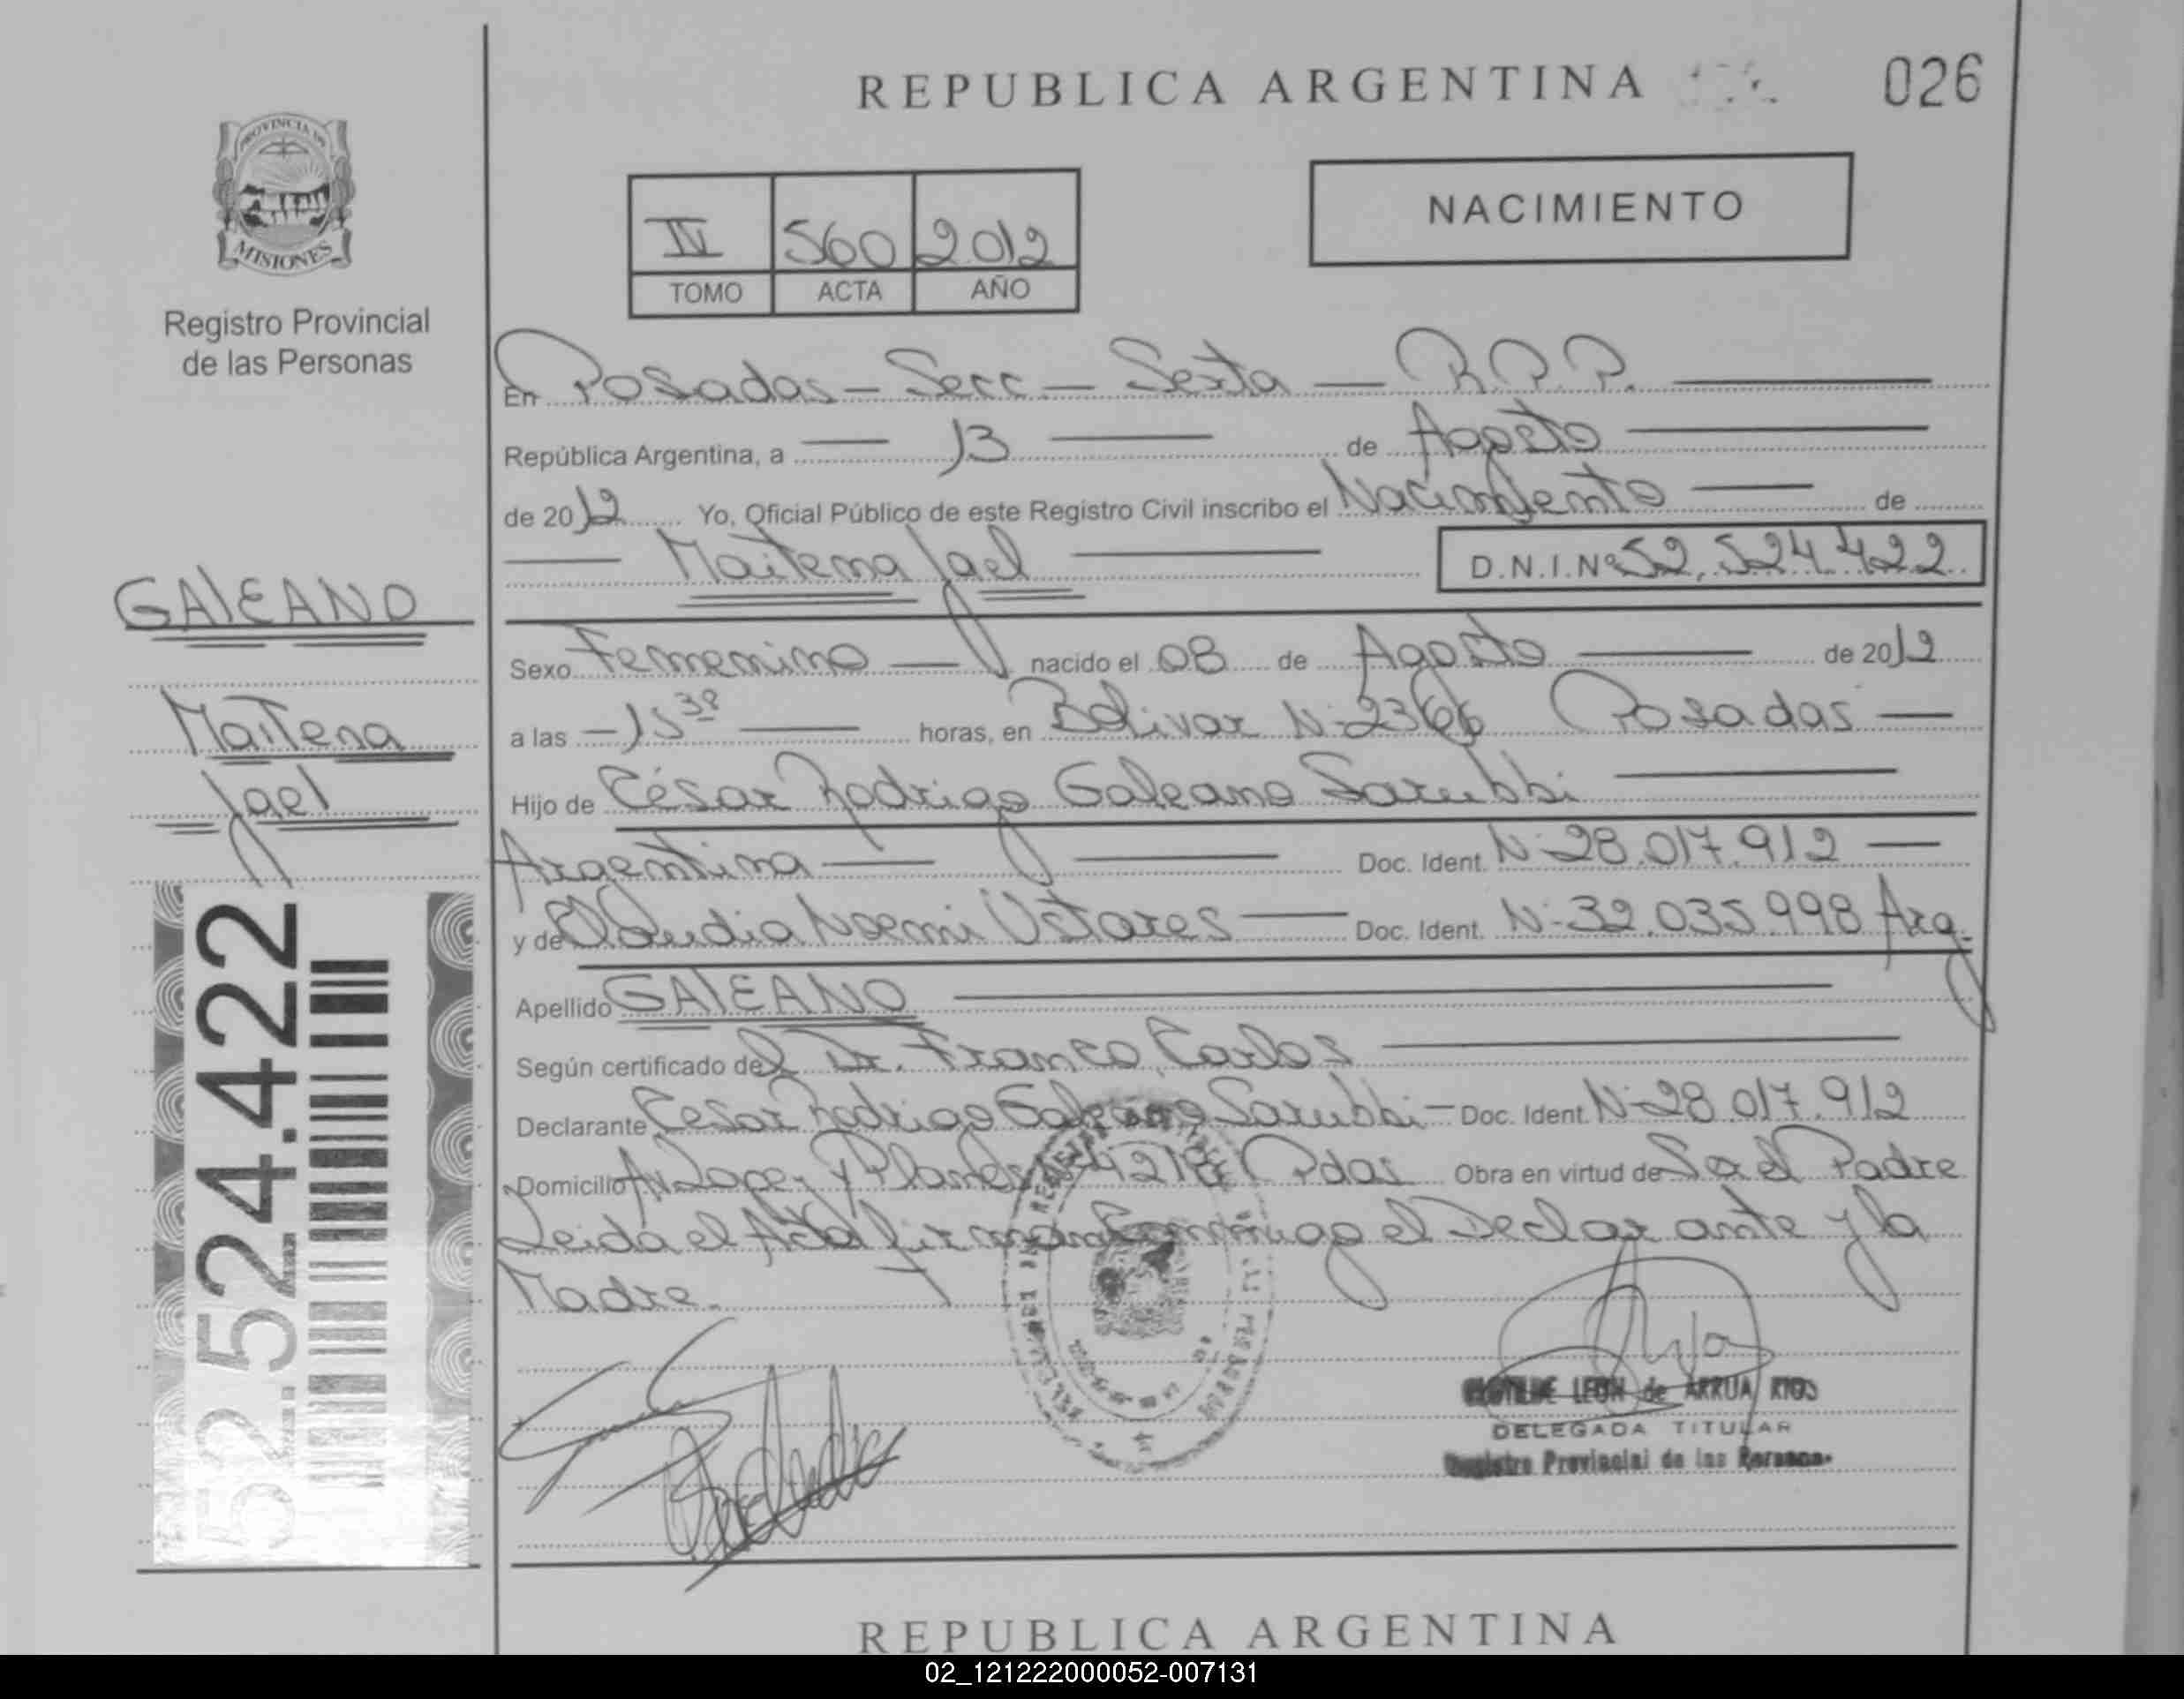 REPUBLICA ARGENTINA
026
PROVINCIA DE
MISIONES
Registro Provincial
de las Personas
IV 560 2012
TOMO ACTA AÑO
NACIMIENTO
En Posadas - Secc - Sexta - R.P.P.
República Argentina, a 13 de Agosto
de 2012 Yo, Oficial Público de este Registro Civil inscribo el Nacimiento de
Maitena Jael D.N.I. Nº 52.524.422
GALEANO
Maitena
Jael
52.524.422
Sexo Femenino nacido el 08 de Agosto de 2012
a las 15 30 horas, en Bolivar N-2366 Posadas
Hijo de César Rodrigo Galeano Sarubbi
Argentina Doc. Ident. N-28.017.912
y de Claudia Noemi Ostares Doc. Ident. N-32.035.998 Arg.
Apellido GALEANO
Según certificado del Dr. Franco, Carlos
Declarante Cesar Rodrigo Galeano Sarubbi - Doc. Ident. N-28.017.912
Domicilio Av Lopez y Planes Pdas Obra en virtud de Ser el Padre
Leida el Acta firman Conmigo el Declarante y la
Madre.
CLOTILDE LEON de ARRUA RIOS
DELEGADA TITULAR
Registro Provincial de las Personas
REPUBLICA ARGENTINA
02_121222000052-007131